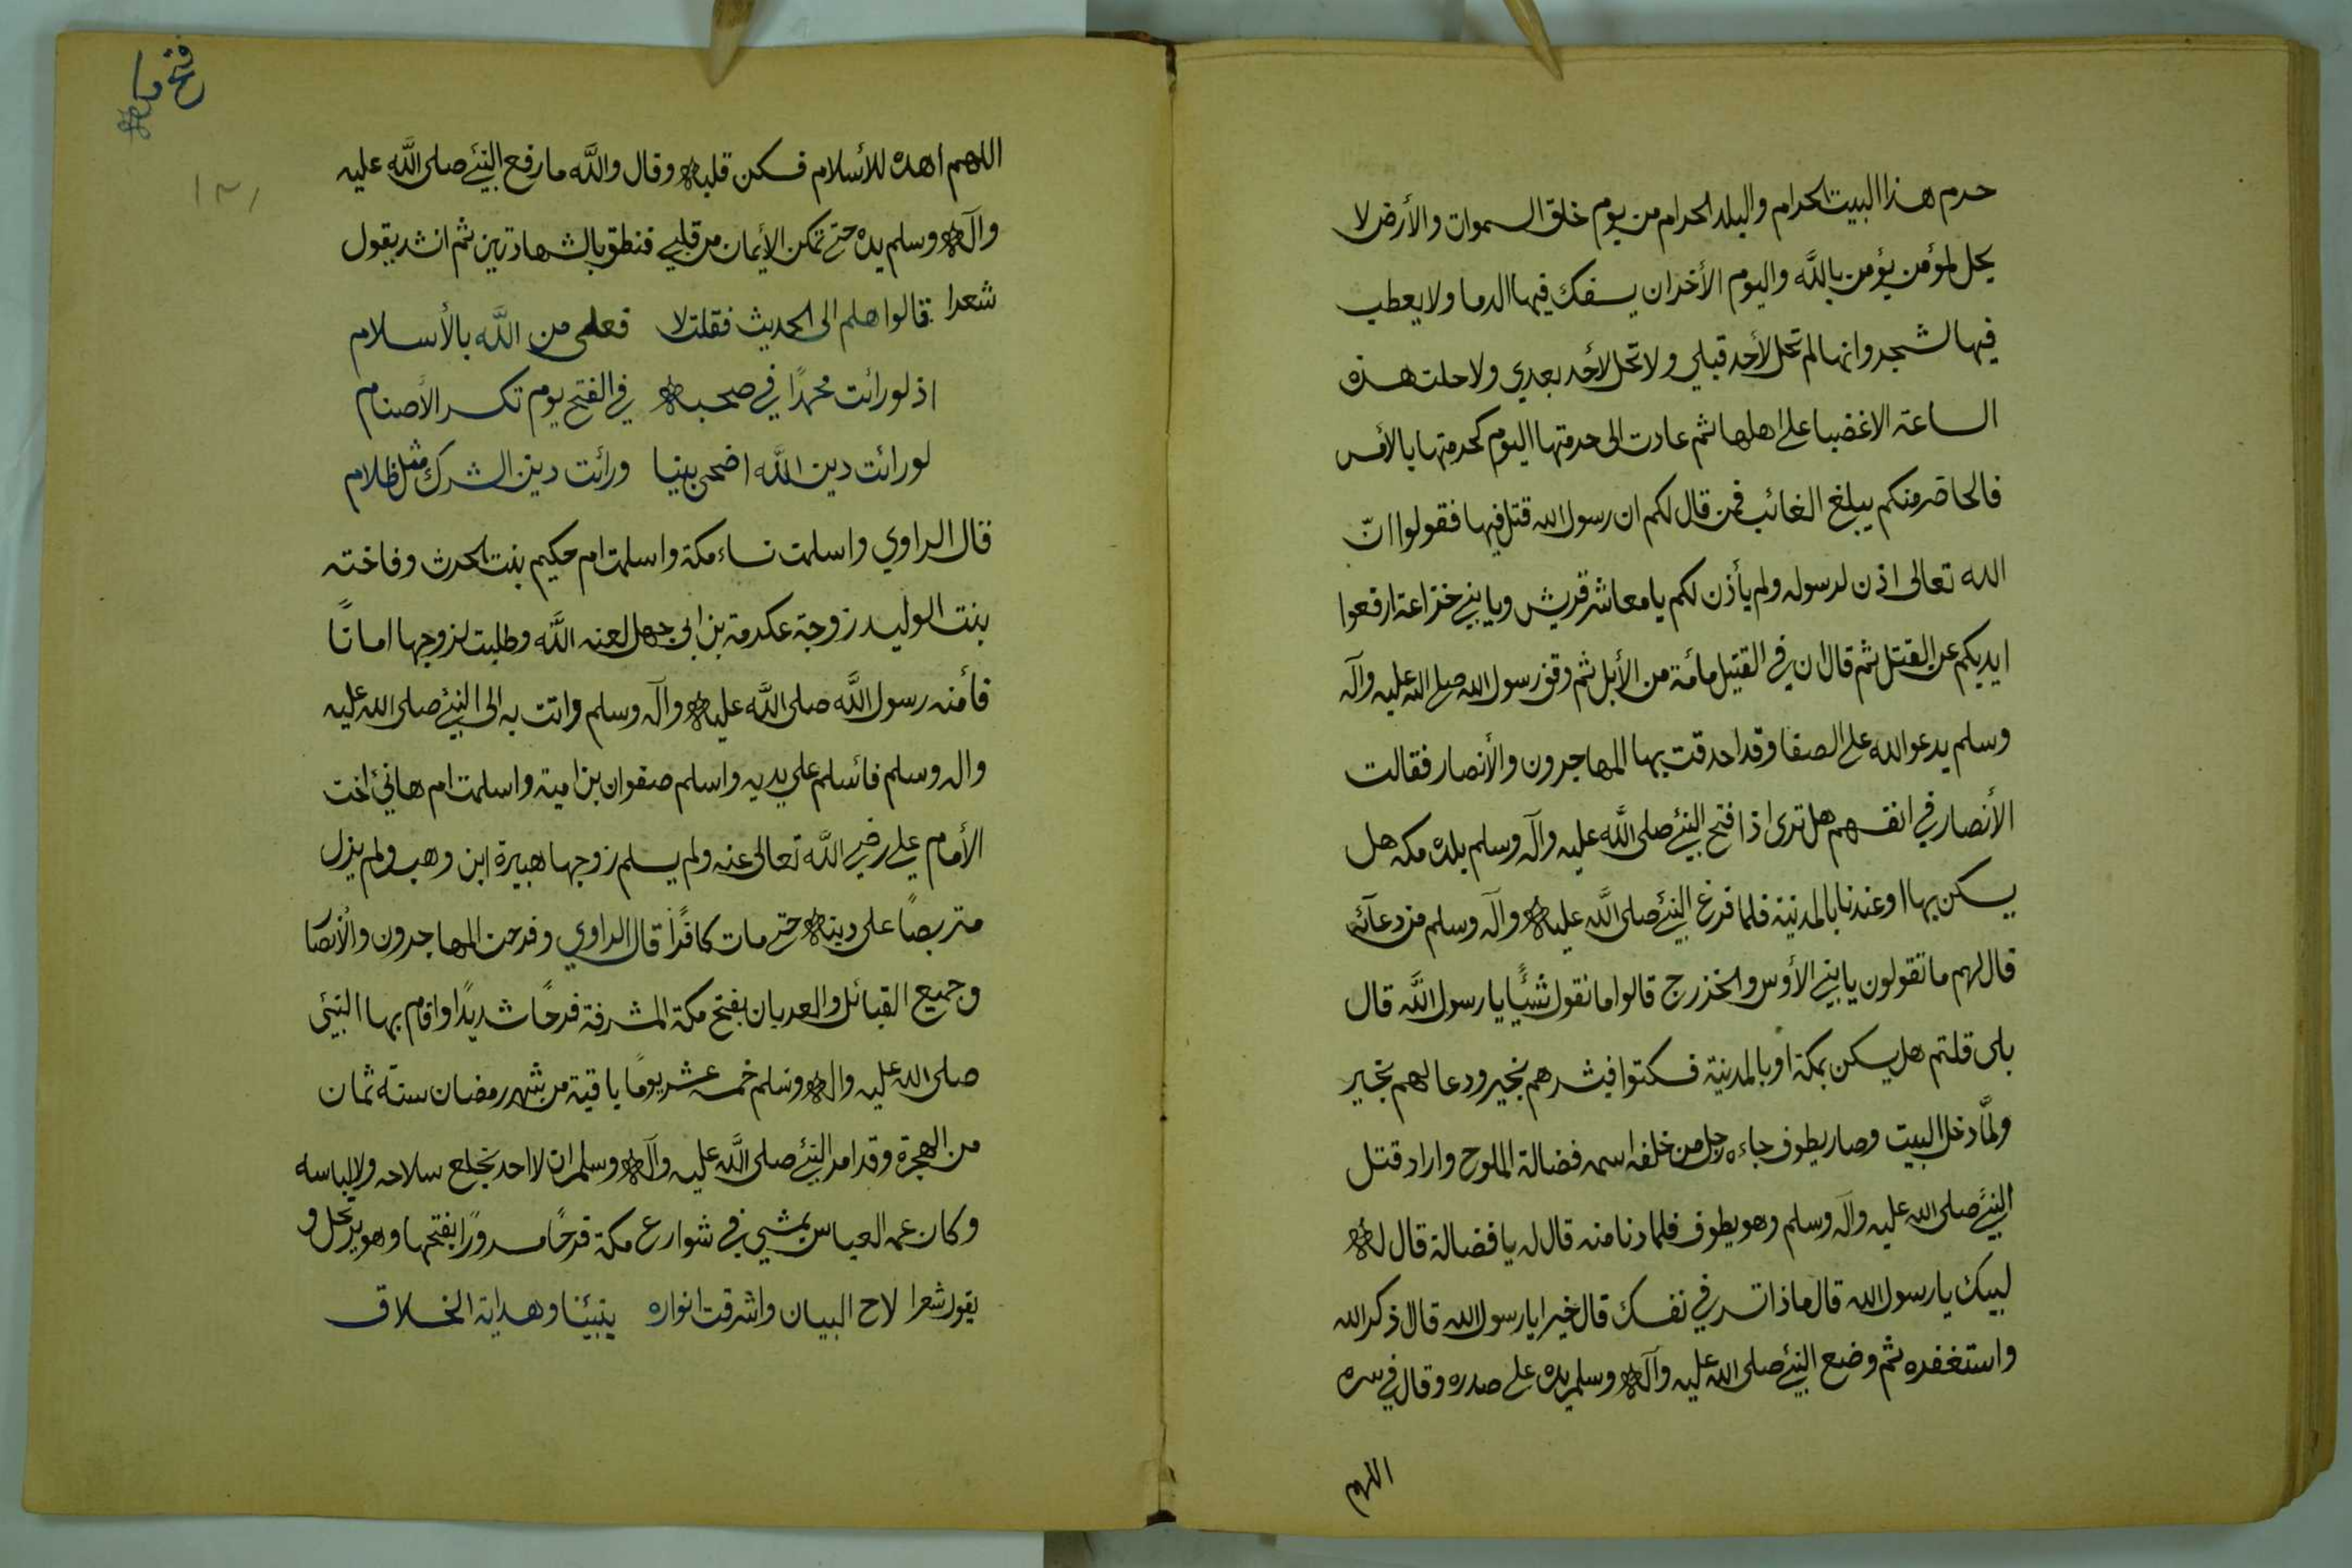 حرم هذا البيت الحرام والبلد الحرام من يوم خلق السموات والأرض لا
يحل لمؤمن يؤمن بالله واليوم الأخر ان يسفك فيها الدما ولا يعطب
فيها لشجر وانها لم تحل لأحد قبلي ولا تحل لأحد بعدي ولا حلت هذه
الساعة الا غضبا على اهلها ثم عادت الى حرمتها اليوم كحرمتها بالأمس
فالحاضر منكم يبلغ الغائب فمن قال لكم ان رسول الله قتل فيها فقولوا انّ
الله تعالى اذن لرسوله ولم يأذن لكم يا معاشر قريش ويا بني خزاعة ارفعوا
ايديكم عن القتل ثم قال ان في القتيل مأئة من الأبل ثم وقف رسول الله صلى الله عليه وآله
وسلم يدعو الله على الصفا وقد احدقت بها المهاجرون والأنصار فقالت
الأنصار في انفسهم هل ترى اذا فتح النبئ صلى الله عليه وآله وسلم بلده مكه هل
يسكن بها او عندنا بالمدينة فلما فرغ النبئ صلى الله عليه وآله وسلم من دعائه
قال لهم ما تقولون يا بني الأوس والخزرج قالوا ما نقول شيئًا يا رسول الله قال
بلى قلتم هل يسكن بمكة او بالمدينة فسكتوا فبشرهم بخير ودعا لهم بخير
ولمّا دخل البيت وصار يطوف جاءه رجل من خلفه اسمه فضالة الملوح واراد قتل
النبئ صلى الله عليه وآله وسلم وهو يطوف فلما دنا منه قال له يا فضالة قال له
لبيك يا رسول الله قال ماذا تسر في نفسك قال خيرا يا رسول الله قال ذكر الله
واستغفره ثم وضع النبئ صلى الله عليه وآله وسلم يده على صدره وقال في سره
اللهم
فتح مكه
١٣١
اللهم اهده للأسلام فسكن قلبه وقال والله ما رفع النبئ صلى الله عليه
وآله وسلم يده حتى تمكن الأيمان من قلبي فنطق بالشهادتين ثم انشد يقول
شعرا قالوا هلم الى الحديث فقلت لا فعلمى من الله بالأسلام
اذ لو رائت محمدًا في صحبه في الفتح يوم تكسر الأصنام
لو رائت دين الله اضحى بينا ورائت دين الشرك مثل ظلام
قال الراوي واسلمت نساء مكة واسلمت ام حكيم بنت الحرث وفاخته
بنت الوليد زوجة عكرمة بن ابى جهل لعنه الله وطلبت لزوجها امانًا
فأمنه رسول الله صلى الله عليه وآله وسلم واتت به الى النبئ صلى الله عليه
واله وسلم فأسلم على يديه واسلم صفوان بن امية واسلمت ام هانئ اخت
الأمام علي رضي الله تعالى عنه ولم يسلم زوجها هبيرة ابن وهب ولم يزل
متربصًا على دينه حتى مات كافرًا قال الراوي وفرحت المهاجرون والأنصا
وجميع القبائل والعربان بفتح مكة المشرفة فرحًا شديدًا واقام بها النبئ
صلى الله عليه واله وسلم خمسه عشر يومًا باقية من شهر رمضان سنة ثمان
من الهجرة وقد امر النبئ صلى الله عليه وآله وسلم ان لا احد يخلع سلاحه ولا لباسه
وكان عمه العباس يمشي في شوارع مكة فرحًا مسرورًا بفتحها وهو يرتحل و
يقول شعرا لاح البيان واشرقت انواره بنبيّنا وهداية الخلاق